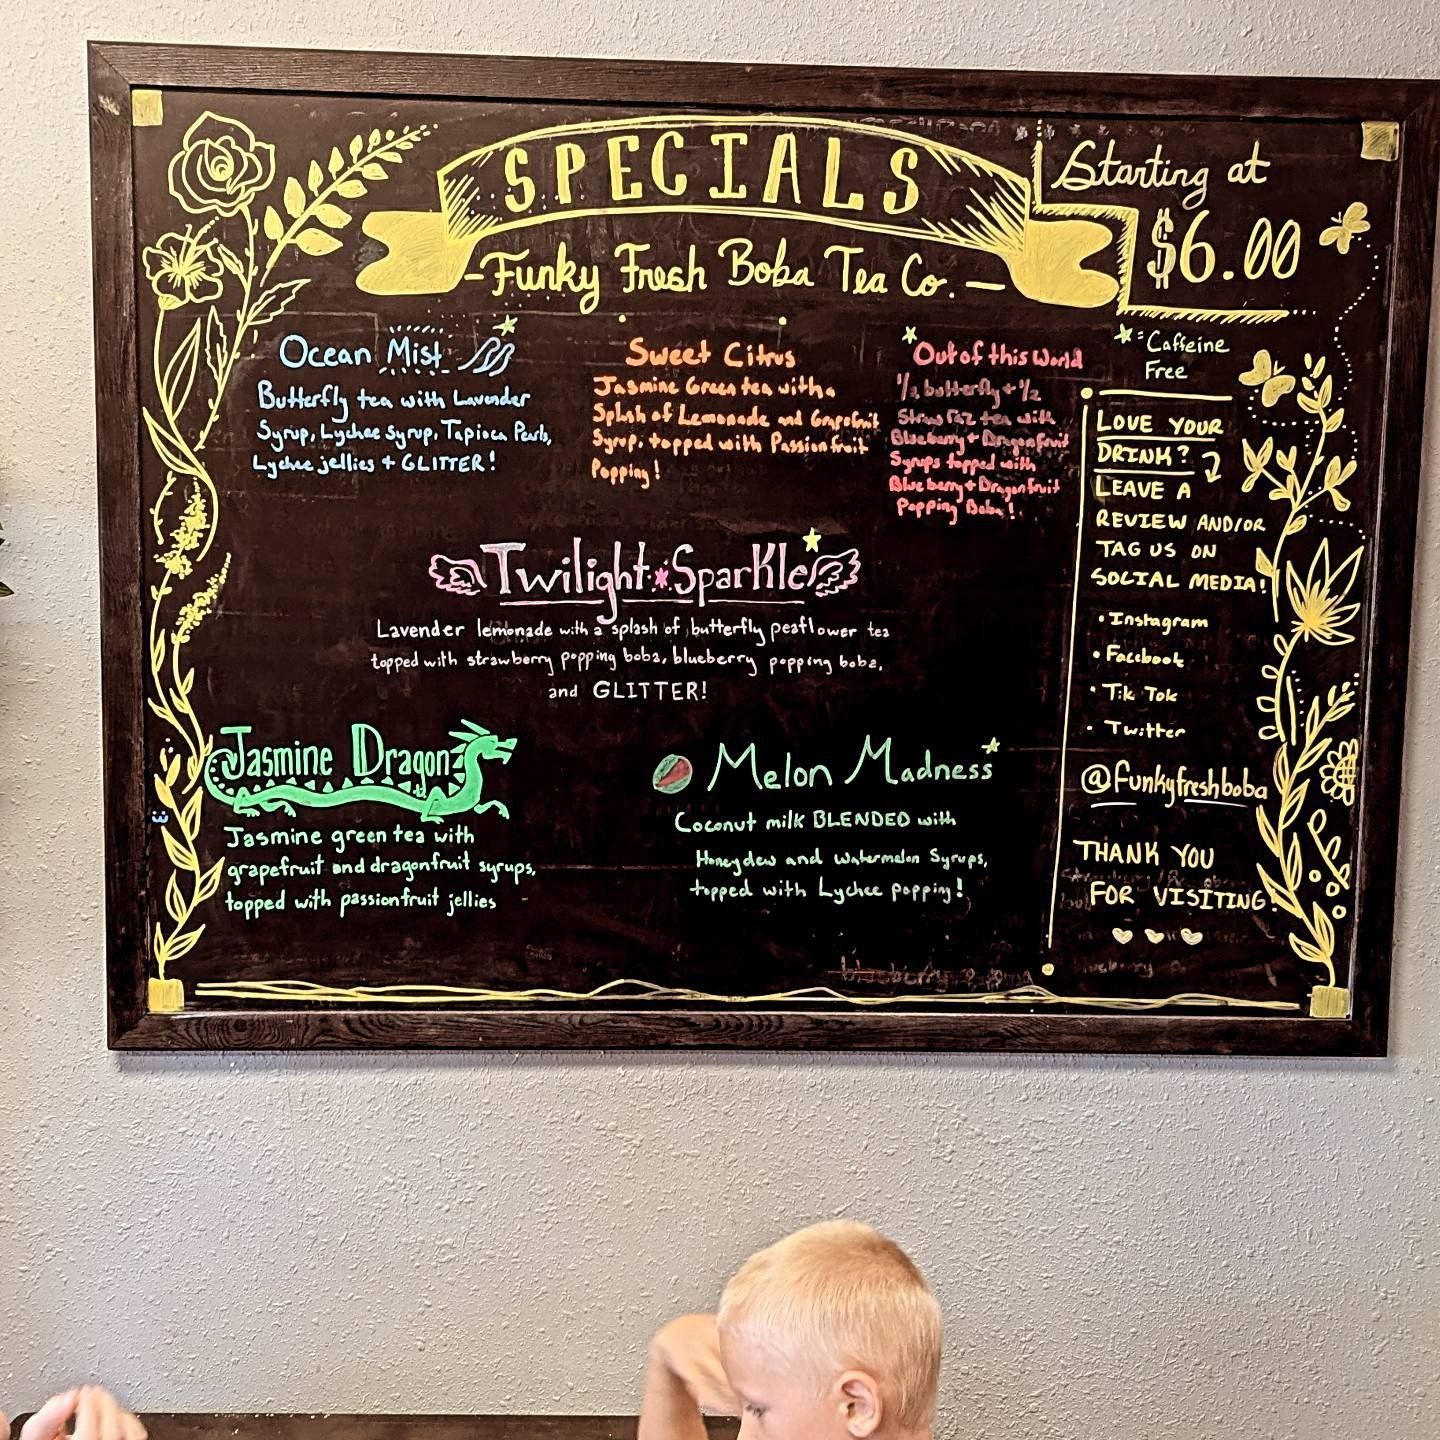 SPECIALS
Starting at
$6.00
-Funky Fresh Boba Tea Co.-
* = Caffeine
Free
Ocean Mist
Butterfly tea with Lavender
Syrup, Lychee syrup, Tapioca Pearls,
Lychee jellies + GLITTER!
Sweet Citrus
Jasmine Green tea with a
Splash of Lemonade and Grapefruit
Syrup, topped with Passionfruit
Popping!
Out of this World
1/2 butterfly + 1/2
tea with
Blueberry + Dragonfruit
Syrups topped with
Blueberry + Dragonfruit
Popping Boba!
Twilight*Sparkle
Lavender lemonade with a splash of butterfly peaflower tea
topped with strawberry popping boba, blueberry popping boba,
and GLITTER!
Jasmine Dragon
Jasmine green tea with
grapefruit and dragonfruit syrups,
topped with passionfruit jellies
Melon Madness
Coconut milk BLENDED with
Honeydew and watermelon Syrups,
topped with Lychee popping!
LOVE YOUR
DRINK?
LEAVE A
REVIEW AND/OR
TAG US ON
SOCIAL MEDIA!
• Instagram
• Facebook
• Tik Tok
• Twitter
@funkyfreshboba
THANK YOU
FOR VISITING!
blueberry
Blueberry